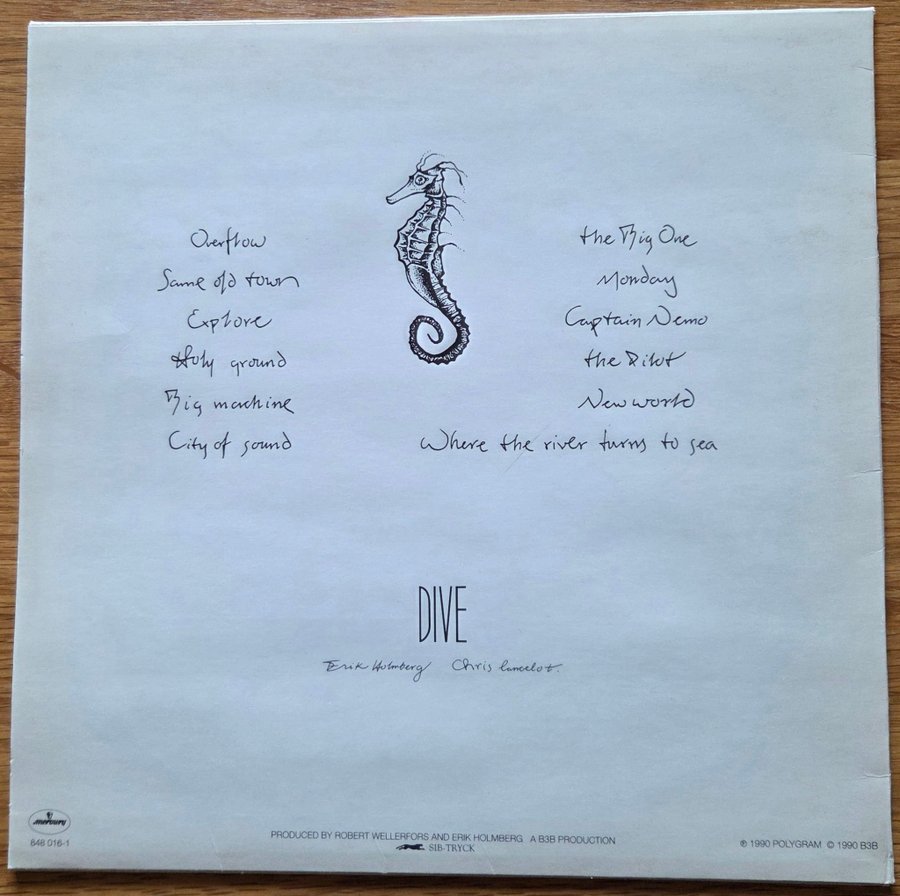 Overflow
Same old town
Explore
Holy ground
Big machine
City of sound
the Big One
Monday
Captain Nemo
the Pilot
New world
Where the river turns to sea
DIVE
Erik Holmberg Chris Lancelot.
mercury
848 016-1
PRODUCED BY ROBERT WELLERFORS AND ERIK HOLMBERG A B3B PRODUCTION
SIB-TRYCK
℗ 1990 POLYGRAM © 1990 B3B